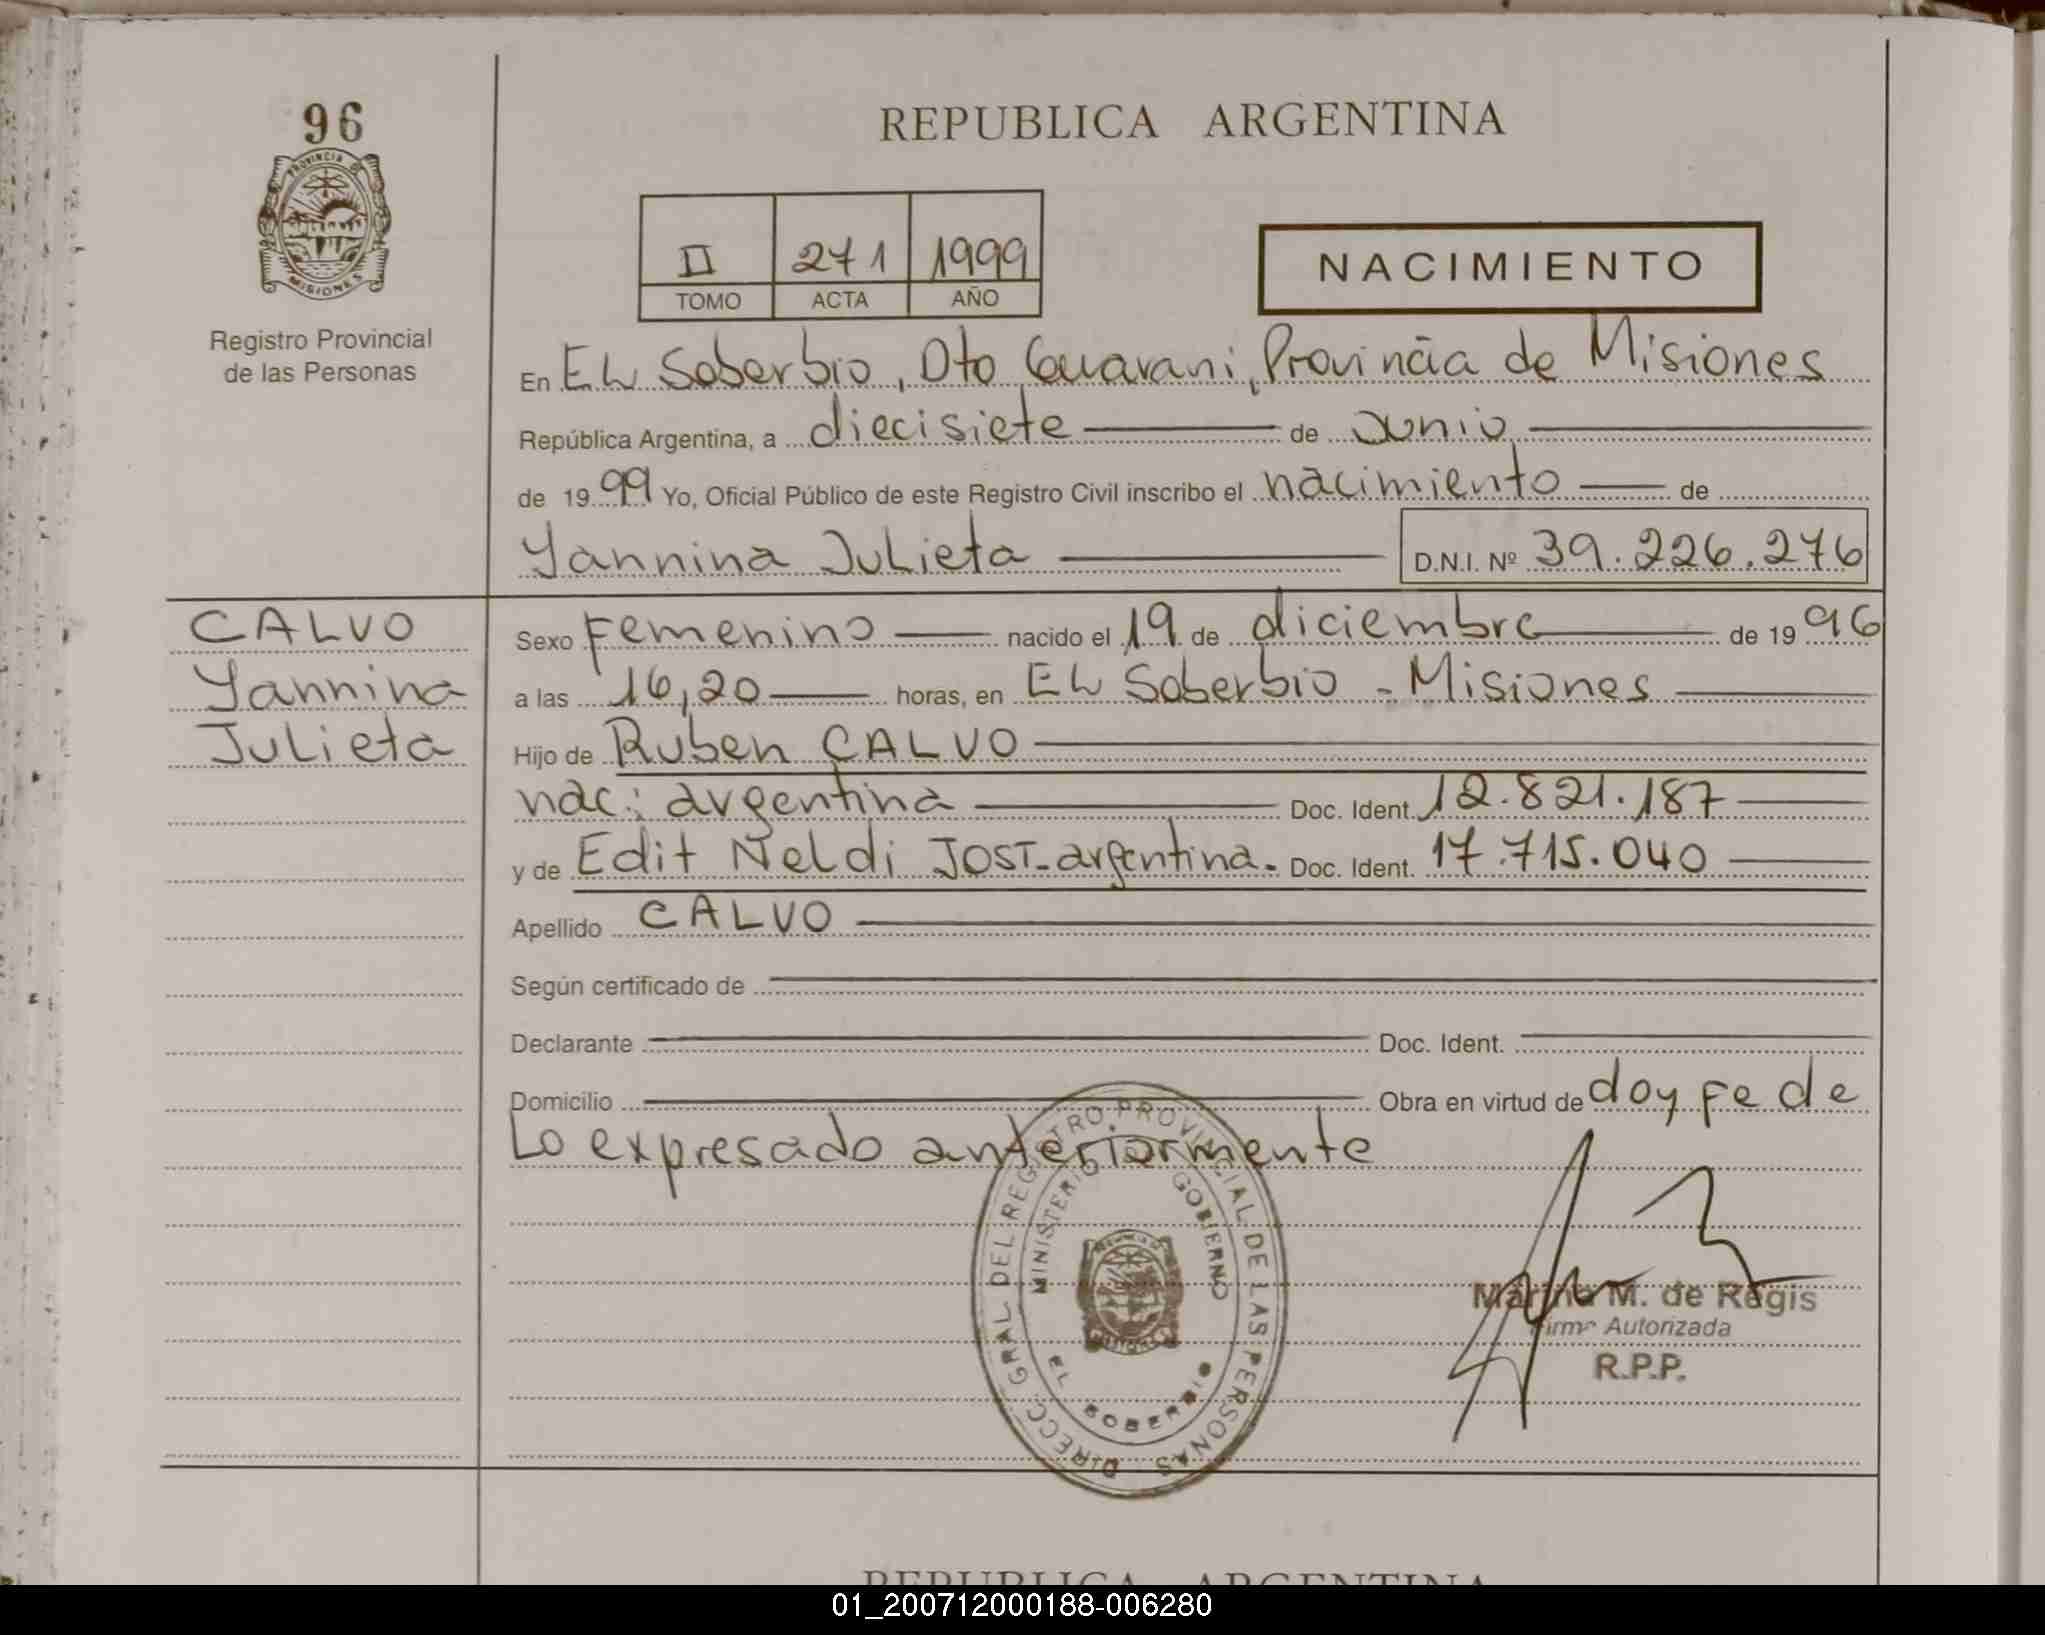 96
PROVINCIA DE
MISIONES
Registro Provincial
de las Personas
REPUBLICA ARGENTINA
II 271 1999
TOMO ACTA AÑO
NACIMIENTO
En EL Soberbio, Dto Guarani, Provincia de Misiones
República Argentina, a diecisiete de Junio
de 1999 Yo, Oficial Público de este Registro Civil inscribo el nacimiento de
Yannina Julieta D.N.I. Nº 39.226.276
CALVO
Yannina
Julieta
Sexo Femenino nacido el 19 de diciembre de 1996
a las 16,20 horas, en EL Soberbio - Misiones
Hijo de Ruben CALVO
nac: argentina Doc. Ident. 12.821.187
y de Edit Neldi JOST-argentina. Doc. Ident. 17.715.040
Apellido CALVO
Según certificado de
Declarante Doc. Ident.
Domicilio Obra en virtud de doy fe de
Lo expresado anteriormente
DIRECC. GRAL DEL REGISTRO PROVINCIAL DE LAS PERSONAS
MINISTERIO GOBIERNO
EL SOBERBIO
Marina M. de Regis
Firma Autorizada
R.P.P.
REPUBLICA ARGENTINA
01_200712000188-006280